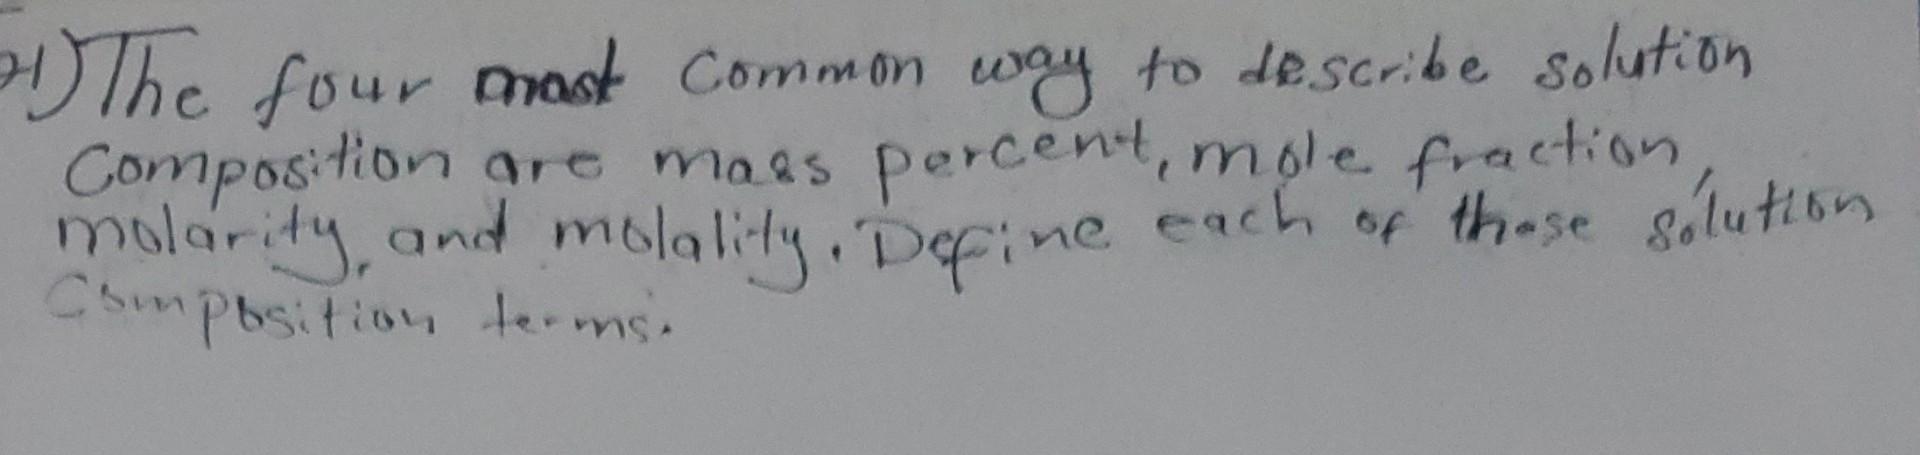 21) The four most common way to describe solution
Composition are mass percent, mole fraction,
molarity, and molality. Define each of these solution
Composition terms.